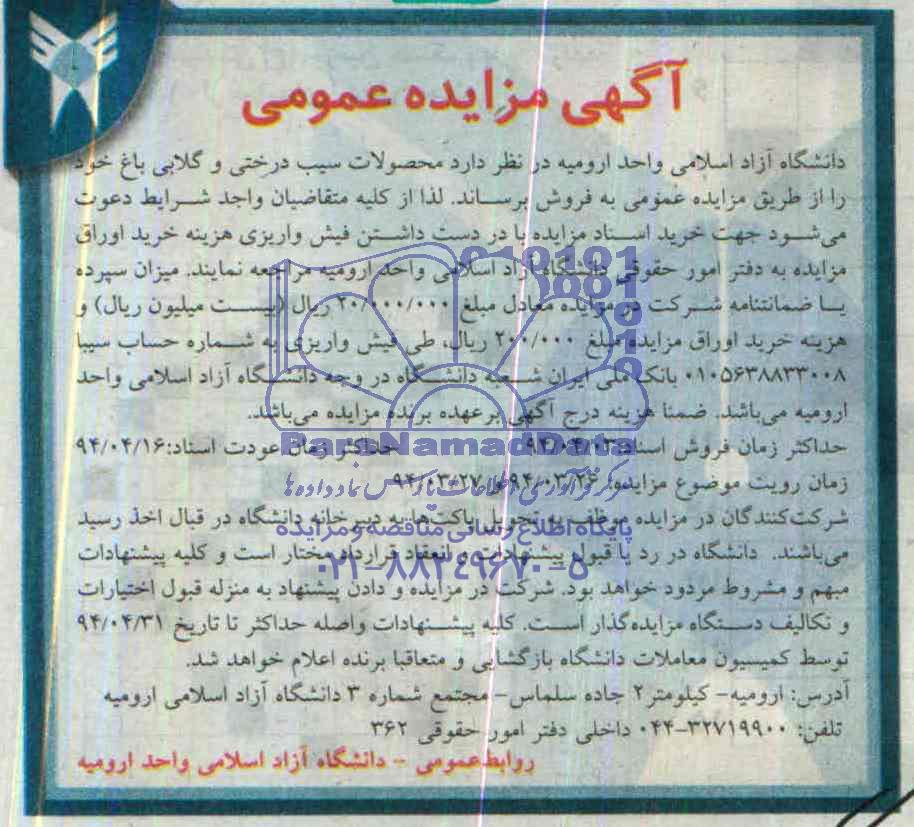 آگهی مزایده عمومی
دانشگاه آزاد اسلامی واحد ارومیه در نظر دارد محصولات سیب درختی و گلابی باغ خود
را از طریق مزایده عمومی به فروش برساند. لذا از کلیه متقاضیان واجد شرایط دعوت
می‌شود جهت خرید اسناد مزایده با در دست داشتن فیش واریزی هزینه خرید اوراق
مزایده به دفتر امور حقوقی دانشگاه آزاد اسلامی واحد ارومیه مراجعه نمایند. میزان سپرده
یا ضمانتنامه شرکت در مزایده معادل مبلغ ۲۰/۰۰۰/۰۰۰ ریال (بیست میلیون ریال) و
هزینه خرید اوراق مزایده مبلغ ۲۰۰/۰۰۰ ریال، طی فیش واریزی به شماره حساب سیبا
۰۱۰۵۶۳۸۸۳۳۰۰۸ بانک ملی ایران شعبه دانشگاه در وجه دانشگاه آزاد اسلامی واحد
ارومیه می‌باشد. ضمنا هزینه درج آگهی برعهده برنده مزایده می‌باشد.
حداکثر زمان فروش اسناد: ۹۴/۰۴/۰۳ حداکثر زمان عودت اسناد: ۹۴/۰۴/۱۶
زمان رویت موضوع مزایده: ۹۴/۰۳/۲۶ و ۹۴/۰۳/۲۷
شرکت‌کنندگان در مزایده موظف به تحویل پاکت‌ها به دبیرخانه دانشگاه در قبال اخذ رسید
می‌باشند. دانشگاه در رد یا قبول پیشنهادات و انعقاد قرارداد مختار است و کلیه پیشنهادات
مبهم و مشروط مردود خواهد بود. شرکت در مزایده و دادن پیشنهاد به منزله قبول اختیارات
و تکالیف دستگاه مزایده‌گذار است. کلیه پیشنهادات واصله حداکثر تا تاریخ ۹۴/۰۴/۳۱
توسط کمیسیون معاملات دانشگاه بازگشایی و متعاقبا برنده اعلام خواهد شد.
آدرس: ارومیه- کیلومتر ۲ جاده سلماس- مجتمع شماره ۳ دانشگاه آزاد اسلامی ارومیه
تلفن: ۳۲۷۱۹۹۰۰-۰۴۴ داخلی دفتر امور حقوقی ۳۶۲
روابط‌عمومی - دانشگاه آزاد اسلامی واحد ارومیه
ParsNamadData
مرکز فرآوری اطلاعات پارس نماد داده‌ها
پایگاه اطلاع رسانی مناقصه و مزایده
۰۲۱-۸۸۳۴۹۶۷۰-۵